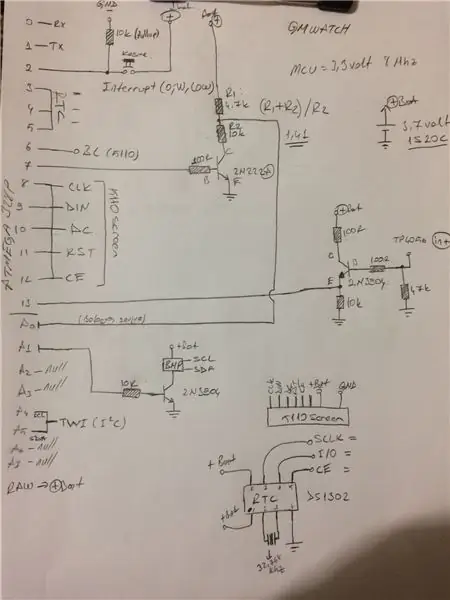 GMWATCH
MCU = 3,3 volt 8 Mhz
GND
10k
Interrupt (0; W, LOW)
0 - Rx
1 - Tx
2
3
4
5
6 BL (5110)
7
8 CLK
9 DIN
10 DC
11 RST
12 CE
13
5110 screen
A0
A1
A2 - null
A3 - null
A4 SCL
A5 SDA
TWI (I²C)
A6 - null
A7 - null
RAW → +Bat
R1
4.7k
(R1+R2)/R2
R2
10k
1,41
100R
B
C
E
2N2222A
+Bat
3,7 volt
+Bat
100R
C
B
E
100R
2N3904
10k
4.7k
TP4056
int+
+Bat
BMP
SCL
SDA
10k
2N3904
+Bat
GND
5110 Screen
SCLK =
I/O =
CE =
+Bat
+Bat
RTC
DS1302
32,768
khz